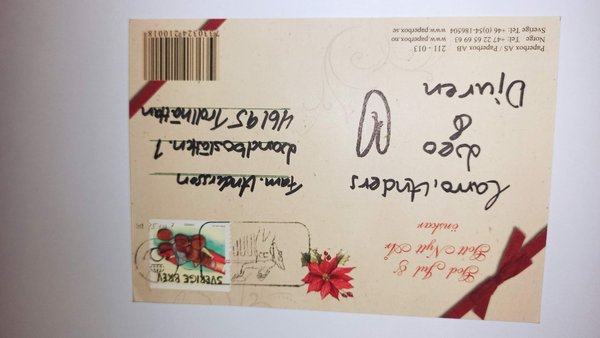 God Jul &
Gott Nytt År
önskar
Lano, Anders
Leo
&
Djuren
SVERIGE BREV
Fam. Andersson
Landboslätten. 7
461 95 Trollhättan
211 - 013
Paperbox AS / Paperbox AB
Norge Tel: +47 22 65 69 63 www.paperbox.no
Sverige Tel: +46 (0)54-186504 www.paperbox.se